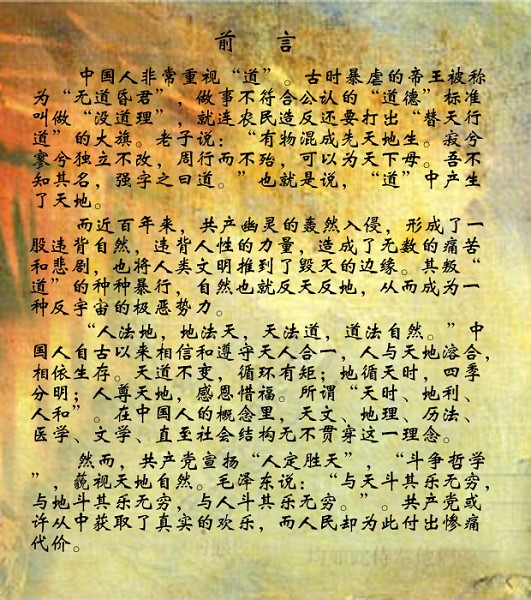 前 言
中国人非常重视“道”。古时暴虐的帝王被称
为“无道昏君”，做事不符合公认的“道德”标准
叫做“没道理”，就连农民造反还要打出“替天行
道”的大旗。老子说：“有物混成先天地生。寂兮
寥兮独立不改，周行而不殆，可以为天下母。吾不
知其名，强字之曰道。”也就是说，“道”中产生
了天地。
而近百年来，共产幽灵的轰然入侵，形成了一
股违背自然，违背人性的力量，造成了无数的痛苦
和悲剧，也将人类文明推到了毁灭的边缘。其叛“
道”的种种暴行，自然也就反天反地，从而成为一
种反宇宙的极恶势力。
“人法地，地法天，天法道，道法自然。”中
国人自古以来相信和遵守天人合一，人与天地溶合，
相依生存。天道不变，循环有矩；地循天时，四季
分明；人尊天地，感恩惜福。所谓“天时、地利、
人和”。在中国人的概念里，天文、地理、历法、
医学、文学、直至社会结构无不贯穿这一理念。
然而，共产党宣扬“人定胜天”，“斗争哲学
”，藐视天地自然。毛泽东说：“与天斗其乐无穷，
与地斗其乐无穷，与人斗其乐无穷。”。共产党或
许从中获取了真实的欢乐，而人民却为此付出惨痛
代价。